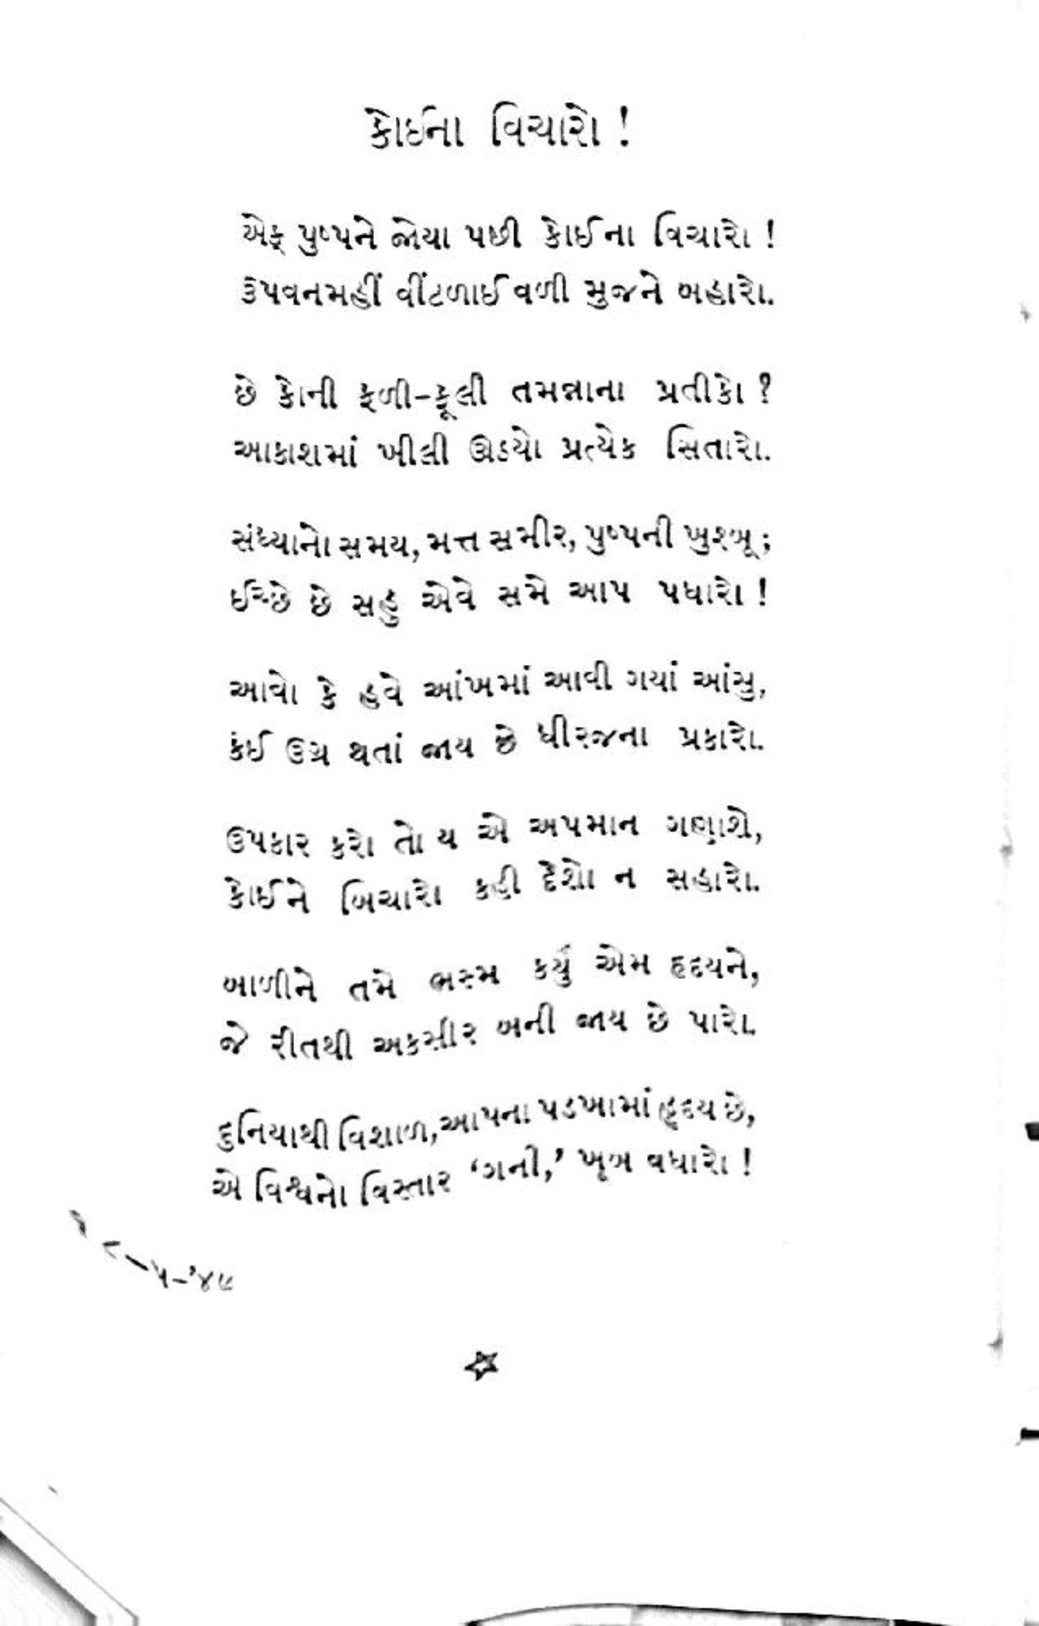 કોઈના વિચારો !
એક પુષ્પને જોયા પછી કોઈના વિચારો !
ઉપવનમહીં વીંટળાઈ વળી મુજને બહારો.
છે કોની ફળી-ફૂલી તમન્નાના પ્રતીકો ?
આકાશમાં ખીલી ઊઠયો પ્રત્યેક સિતારો.
સંધ્યાનો સમય, મત્ત સમીર, પુષ્પની ખુશ્બૂ ;
ઈચ્છે છે સહુ એવે સમે આપ પધારો !
આવો કે હવે આંખમાં આવી ગયાં આંસુ,
કંઈ ઉગ્ર થતાં જાય છે ધીરજના પ્રકારો.
ઉપકાર કરો તો ય એ અપમાન ગણાશે,
કોઈને બિચારો કહી દેશો ન સહારો.
બાળીને તમે ભસ્મ કર્યું એમ હૃદયને,
જે રીતથી અકસીર બની જાય છે પારો.
દુનિયાથી વિશાળ, આપના પડખામાં હૃદય છે,
એ વિશ્વનો વિસ્તાર ‘ગની,’ ખૂબ વધારો !
૧૮-૫-’૪૫